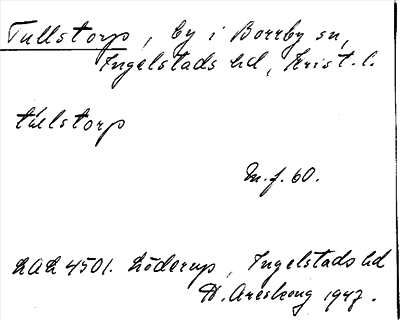 Tullstorp, by i Borrby sn,
Ingelstads hd, Krist. l.
tülstorp
M.f. 60.
LAL 4501. Löderup, Ingelstads hd
H. Areskoug 1947.